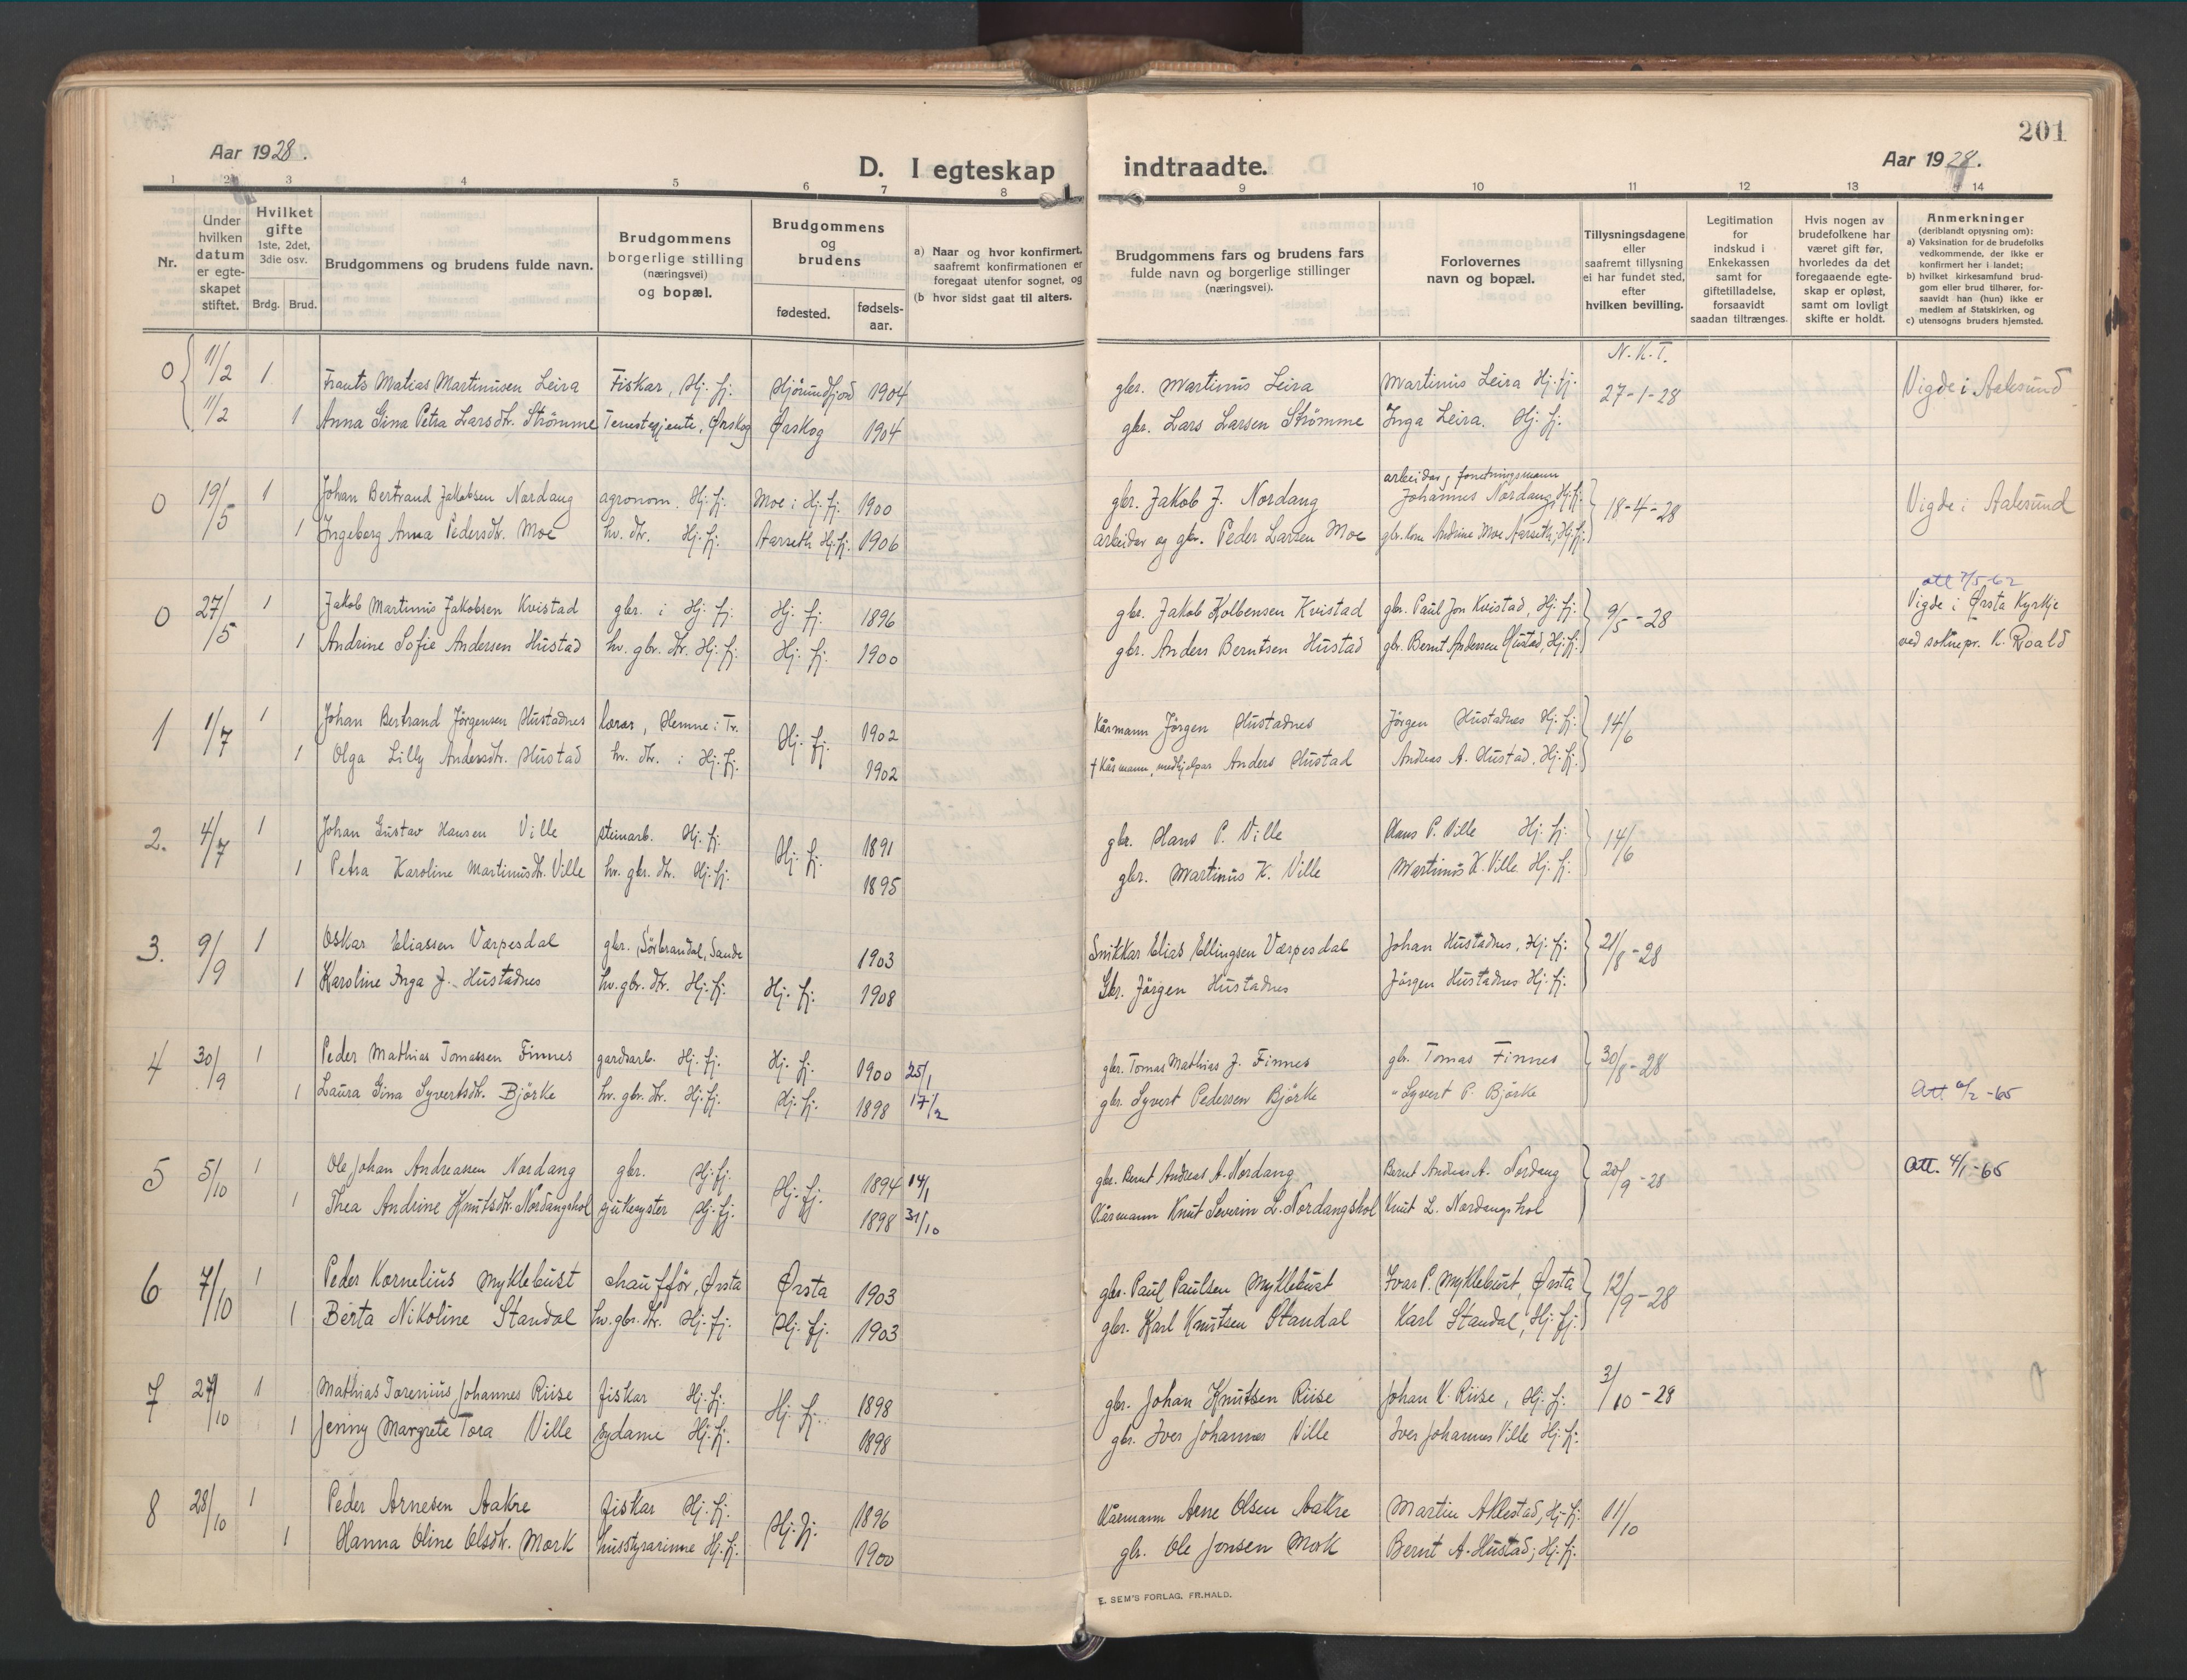 201
Aar 1928.
D. I egteskap indtraadte.
Aar 1928.
1 2 3 4 5 6 7 8 9 10 11 12 13 14
Nr.
Under hvilken datum er egteskapet stiftet.
Hvilket gifte 1ste, 2det, 3die osv.
Brdg. Brud.
Brudgommens og brudens fulde navn.
Brudgommens borgerlige stilling (næringsvei) og bopæl.
Brudgommens og brudens
fødested. fødsels-aar.
a) Naar og hvor konfirmert, saafremt konfirmationen er foregaat utenfor sognet, og
(b hvor sidst gaat til alters.
Brudgommens fars og brudens fars fulde navn og borgerlige stillinger (næringsvei).
Forlovernes navn og bopæl.
Tillysningsdagene eller saafremt tillysning ei har fundet sted, efter hvilken bevilling.
Legitimation for indskud i Enkekassen samt for giftetilladelse, forsaavidt saadan tiltrænges.
Hvis nogen av brudefolkene har været gift før, hvorledes da det foregaaende egteskap er opløst, samt om lovligt skifte er holdt.
Anmerkninger (deriblandt oplysning om):
a) Vaksination for de brudefolks vedkommende, der ikke er konfirmert her i landet;
b) hvilket kirkesamfund brudgom eller brud tilhører, forsaavidt han (hun) ikke er medlem af Statskirken, og
c) utensogns bruders hjemsted.
N.K.T.
0 11/2 1 Frants Matias Martinusen Leira Fiskar, Hj.fj. Hjørundfjord 1904 gbr. Martinus Leira Martinus Leira Hj.fj. 27-1-28 Vigde i Aalesund
11/2 1 Anna Gina Petra Larsdtr. Strömme Tenestgjente, Ørskog Ørskog 1904 gbr. Lars Larsen Strömme Inga Leira. Hj.fj.
arbeidar, forretningsmann
0 19/5 1 Johan Bertrand Jakobsen Nordang agronom. Hj.fj. Moe i Hj.fj. 1900 gbr. Jakob J. Nordang Johannes Nordang, Hj.fj. 18-4-28 Vigde i Aalesund
1 Ingeborg Anna Pedersdtr. Moe hv. dtr. Hj.fj. Aarseth Hj.fj. 1906 arbeidar og gbr. Peder Larsen Moe gbr. kona Andrine Moe Aarseth, Hj.fj.
att 7/5-62
0 27/5 1 Jakob Martinus Jakobsen Kvistad gbr. i Hj.fj. Hj.fj. 1896 gbr. Jakob Kolbensen Kvistad gbr. Paul Jon Kvistad, Hj.fj. 9/5-28 Vigde i Ørsta Kyrkje
1 Andrine Sofie Andersen Hustad hv. gbr. dtr. Hj.fj. Hj.fj. 1900 gbr. Anders Berntsen Hustad gbr. Bernt Andersen Hustad, Hj.fj. ved soknepr. K. Roald
1 1/7 1 Johan Bertrand Jörgensen Hustadnes lærar, Hemne i Tr. Hj.fj. 1902 Kårmann Jörgen Hustadnes Jörgen Hustadnes Hj.fj. 14/6
1 Olga Lilly Andersdtr. Hustad hv. dtr. i Hj.fj. 1902 † Kårmann, medhjelpar Anders Hustad Andreas A. Hustad, Hj.fj.
2. 4/7 1 Johan Gustav Hansen Ville steinarb. Hj.fj. Hj.fj. 1891 gbr. Hans P. Ville Hans P. Ville Hj.fj. 14/6
1 Petra Karoline Martinusdtr. Ville hv. gbr. dtr. Hj.fj. 1895 gbr. Martinus K. Ville Martinus K. Ville Hj.fj.
3. 9/9 1 Oskar Eliassen Værpesdal gbr., Sörbrandal, Sande 1903 Snikkar Elias Ellingsen Værpesdal Johan Hustadnes, Hj.fj. 21/8-28
1 Karoline Inga J. Hustadnes hv. gbr. dtr. Hj.fj. Hj.fj. 1908 Gbr. Jörgen Hustadnes Jörgen Hustadnes Hj.fj.
4 30/9 1 Peder Mathias Tomassen Finnes gardsarb. Hj.fj. Hj.fj. 1900 25/1 gbr. Tomas Mathias J. Finnes gbr. Tomas Finnes 30/8-28
1 Laura Gina Syvertsdtr. Björke hv. gbr. dtr. Hj.fj. Hj.fj. 1898 17/2 gbr. Syvert Pedersen Björke " Syvert P. Björke Att.
5 5/10 1 Ole Johan Andreassen Nordang gbr. Hj.fj. Hj.fj. 1894 14/1 gbr. Bernt Andreas A. Nordang Bernt Andreas A. Nordang 20/9-28 Att. 4/1-65
1 Thea Andrine Knutsdtr. Nordangshol sjukesyster Hj.fj. 1898 31/10 Kårmann Knut Severin L. Nordangshol Knut L. Nordangshol
6 7/10 1 Peder Kornelius Myklebust chaufför, Ørsta Ørsta 1903 gbr. Paul Paulsen Myklebust Ivar P. Myklebust, Ørsta 12/9-28
1 Berta Nikoline Standal hv. gbr. dtr. Hj.fj. Hj.fj. 1903 gbr. Karl Knutsen Standal Karl Standal, Hj.fj.
7 27/10 1 Mathias Torenius Johannes Riise fiskar Hj.fj. Hj.fj. 1898 gbr. Johan Knutsen Riise Johan K. Riise, Hj.fj. 3/10-28
1 Jenny Margrete Tora Ville sydame Hj.fj. 1898 gbr. Iver Johannes Ville Iver Johannes Ville Hj.fj.
8 28/10 1 Peder Arnesen Aakre fiskar Hj.fj. Hj.fj. 1896 Kårmann Arne Olsen Aakre Martin Aklestad, Hj.fj. 11/10
1 Hanna Oline Olsdtr. Mork husstyrarinne Hj.fj. 1900 gbr. Ole Jonsen Mork Bernt A. Hustad, Hj.fj.
E. SEM'S FORLAG, FR.HALD.